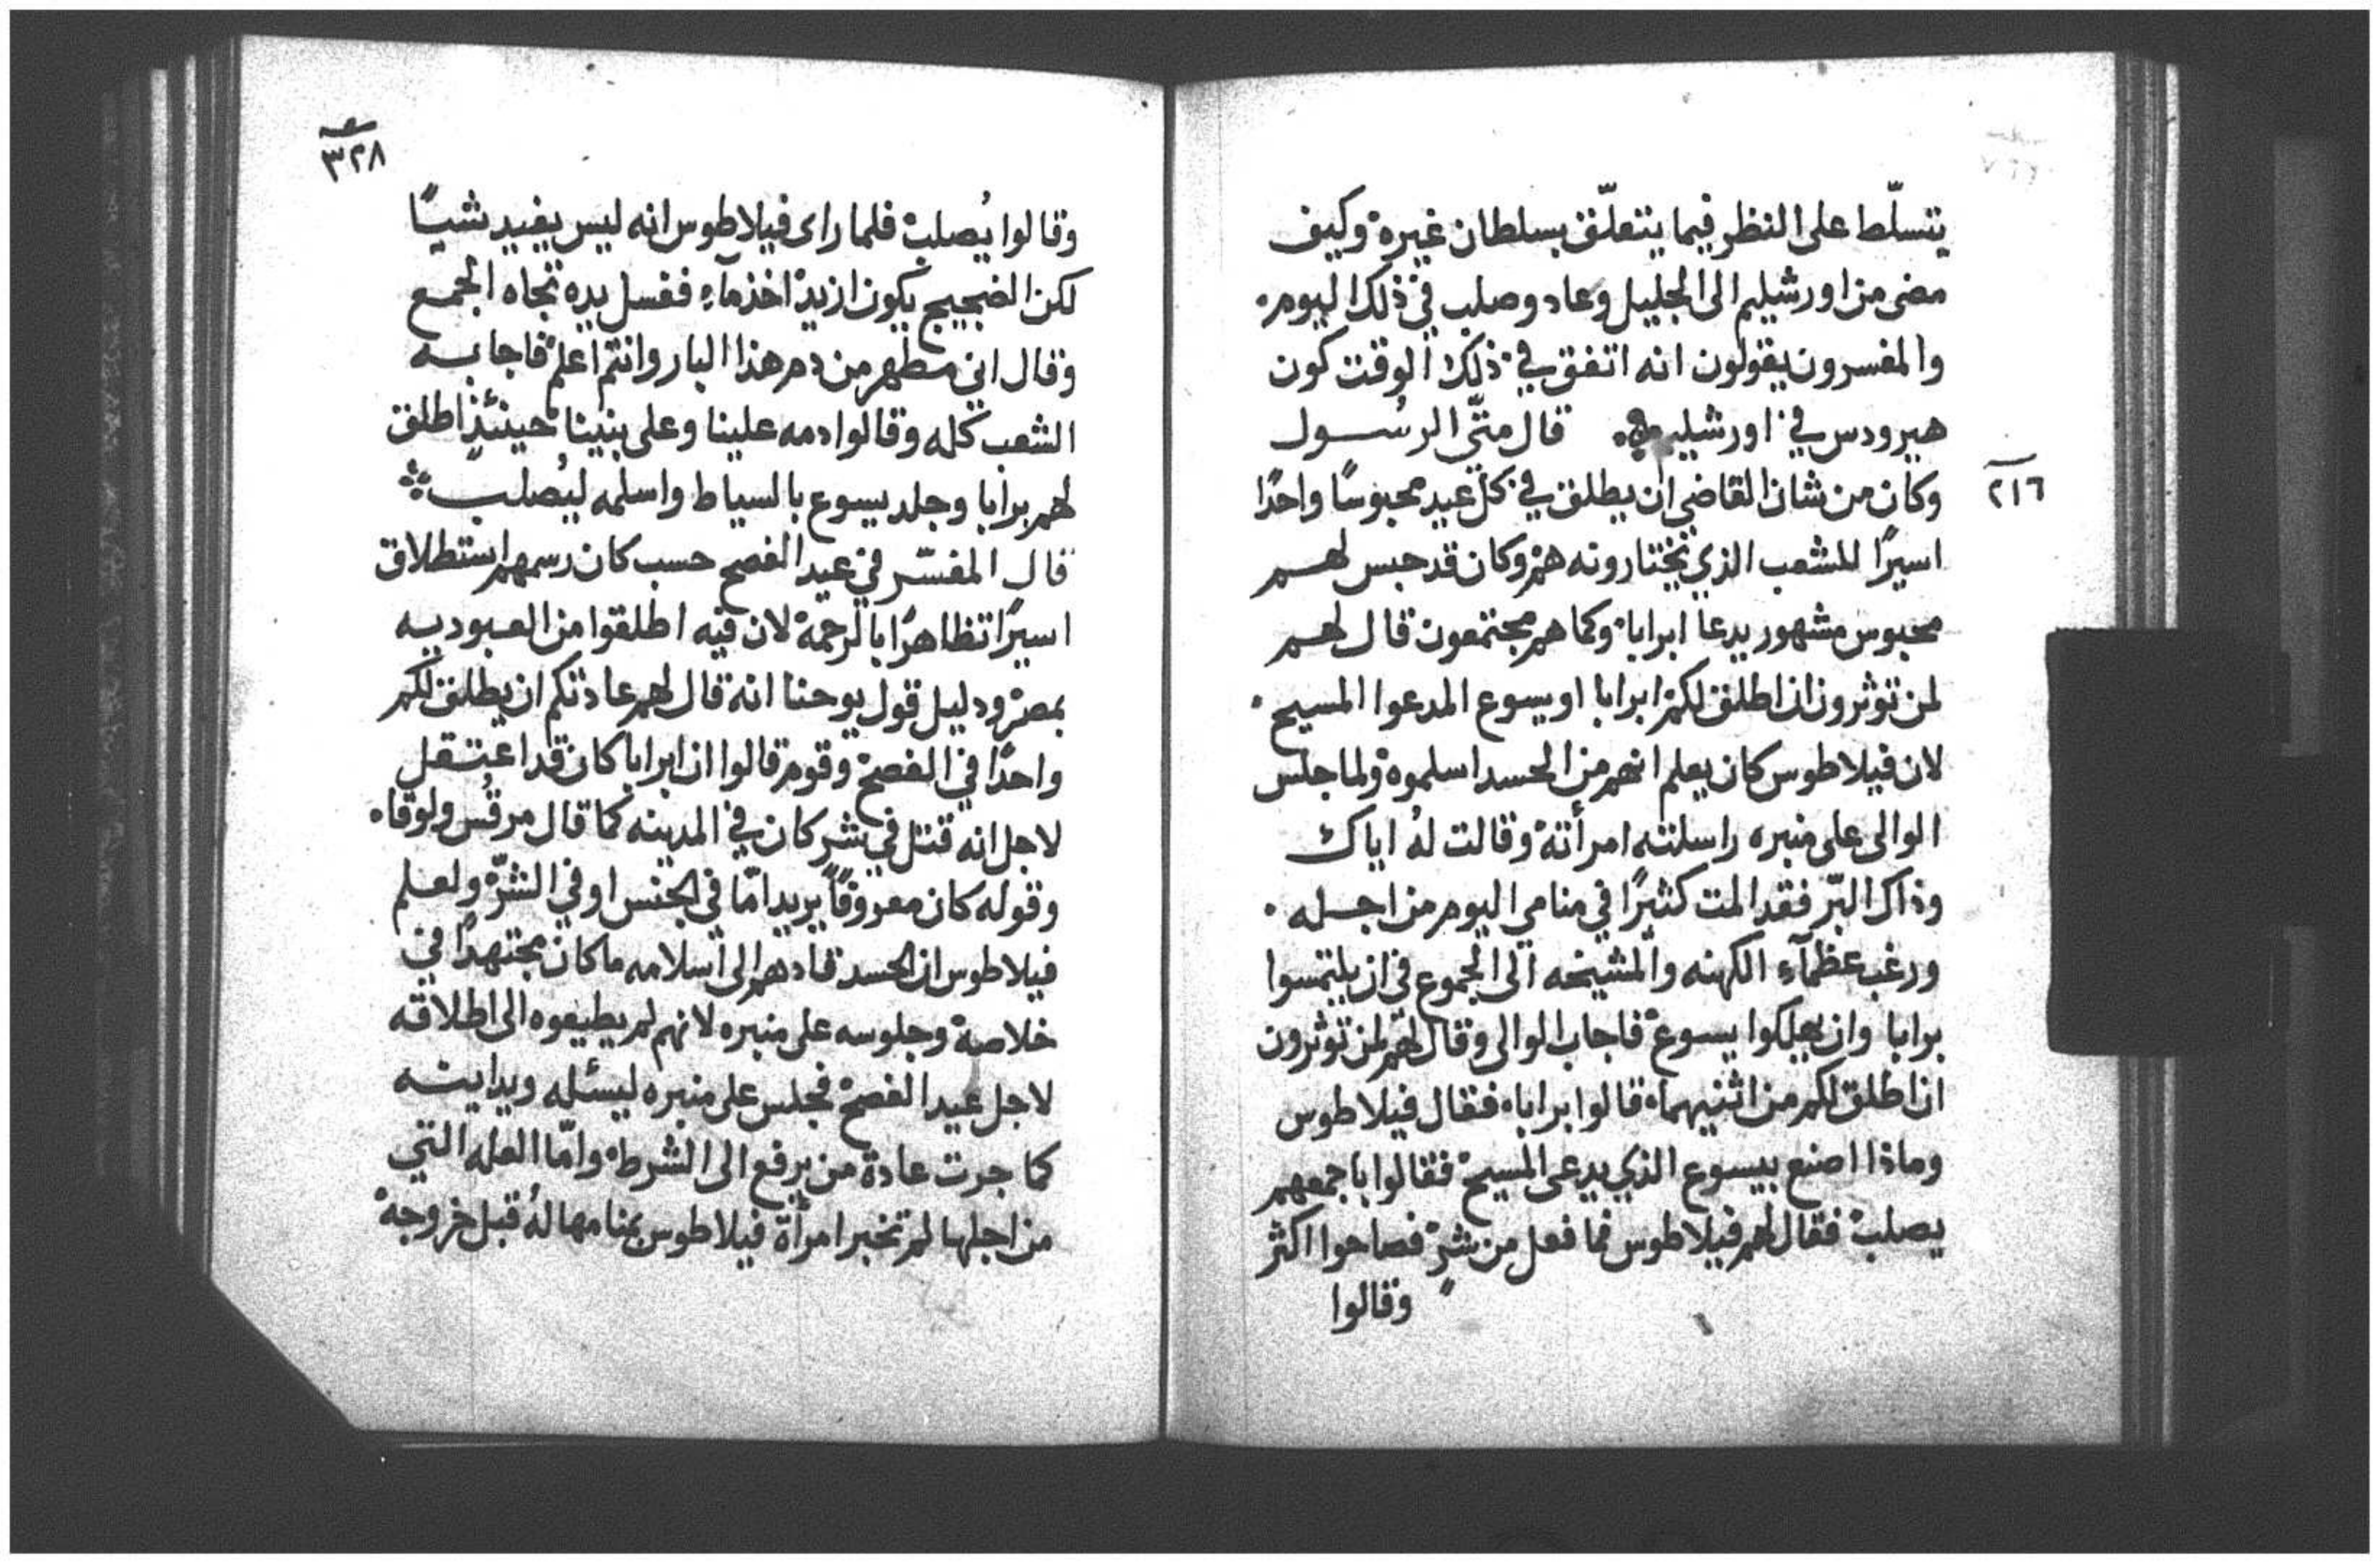 يتسلّط على النظر فيما يتعلّق بسلطان غيره وكيف
مضى من اورشيليم الى الجليل وعاد وصلب في ذلك اليوم.
والمفسرون يقولون انه اتفق في ذلك الوقت كون
هيرودس في اورشليم قال متّى الرسول
٢١٦
وكان من شان القاضي ان يطلق في كل عيد محبوسًا واحدًا
اسيرًا للشعب الذي يختارونه هم وكان قد حبس لهم
محبوس مشهور يدعا ابرابا. وكما هم مجتمعون قال لهم
لمن توثرون ان اطلق لكم ابرابا او يسوع المدعوا المسيح.
لان فيلاطوس كان يعلم انهم من الحسد اسلموه ولما جلس
الوالى على منبره راسلته امرأته وقالت لهُ اياك
وذاك البّر فقد المت كثيرًا في منامي اليوم من اجله.
ورغب عظمآء الكهنه والمشيخه الى الجموع في ان يلتمسوا
برابا وان يهلكوا يسوع فاجاب الوالى وقال لهم لمن توثرون
ان اطلق لكم من اثنيهما. قالوا برابا. فقال فيلاطوس
وماذا اصنع بيسوع الذي يدعى المسيح فقالوا باجمعهم
يصلب فقال لهم فيلاطوس فما فعل من شر فصاحوا اكثر
وقالوا
٣٢٨
وقالوا يُصلب فلما راى فيلاطوس انه ليس يفيد شيًا
لكن الضجيج يكون ازيد اخذ مآء فغسل يده تجاه الجمع
وقال اني مطهر من دم هذا البار وانتم اعلم فاجابه
الشعب كله وقالوا دمه علينا وعلى بنينا حينئذٍ اطلق
لهم برابا وجلد يسوع بالسياط واسلمه ليُصلب
قال المفسّر في عيد الفصح حسب كان رسمهم استطلاق
اسيرًا تظاهرًا بالرحمة لان فيه اطلقوا من العبوديه
بمصر ودليل قول يوحنا انه قال لهم عادتكم ان يطلق لكم
واحدًا في الفصح وقوم قالوا ان ابرابا كان قد اعتقل
لاجل انه قتل في شر كان في المدينه كما قال مرقُس ولوقا.
وقوله كان معروفًا يريد امّا في الجنس او في الشرّ ولعلم
فيلاطوس ان الحسد قادهم الى اسلامه ما كان مجتهدًا في
خلاصه وجلوسه على منبره لانهم لم يطيعوه الى اطلاقه
لاجل عيد الفصح فجلس على منبره ليسئله ويداينه
كما جرت عادة من يرفع الى الشرط. وامّا العله التي
من اجلها لم تخبر امرأة فيلاطوس بمنامها لهُ قبل خروجه